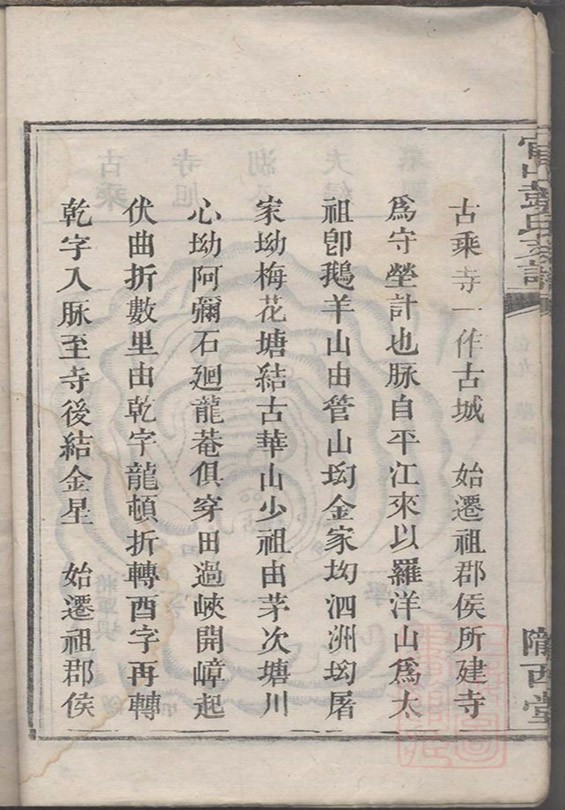 古乘寺一作古城　始遷祖郡侯所建寺
爲守塋計也脉自平江來以羅洋山爲太
祖卽鵝羊山由管山㘭金家㘭泗洲㘭屠
家坳梅花塘結古華山少祖由茅次塘川
心坳阿彌石廻龍菴俱穿田過峽開嶂起
伏曲折數里由乾字龍頓折轉酉字再轉
乾字入脉至寺後結金星　始遷祖郡侯
隴西堂